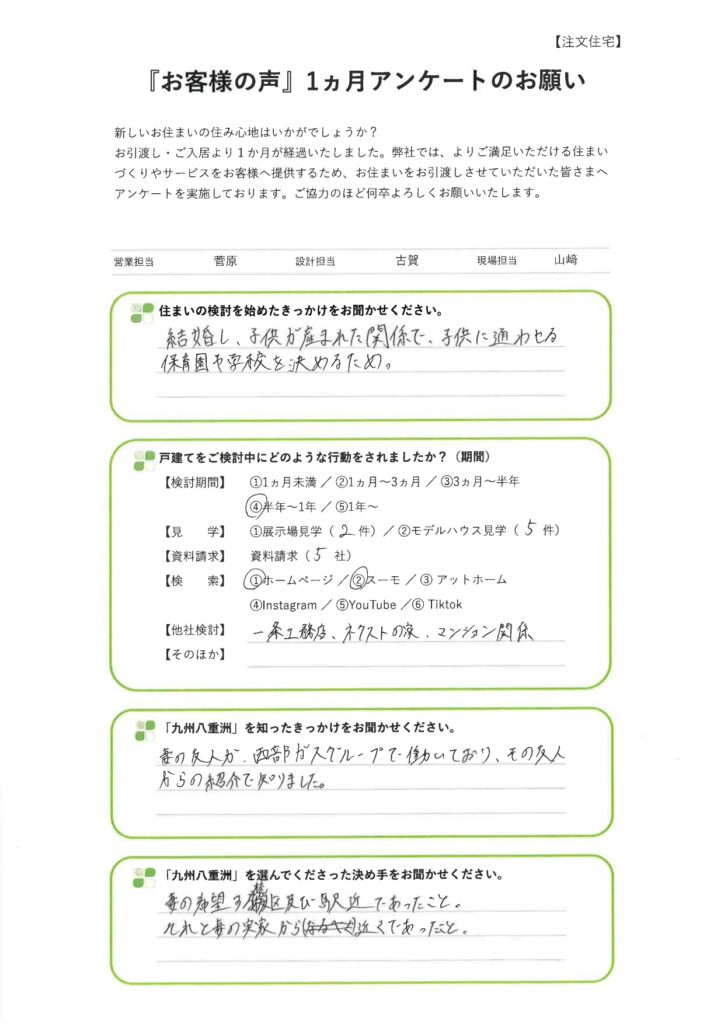 【注文住宅】
『お客様の声』1ヵ月アンケートのお願い
新しいお住まいの住み心地はいかがでしょうか？
お引渡し・ご入居より１か月が経過いたしました。弊社では、よりご満足いただける住まい
づくりやサービスをお客様へ提供するため、お住まいをお引渡しさせていただいた皆さまへ
アンケートを実施しております。ご協力のほど何卒よろしくお願いいたします。
営業担当 菅原 設計担当 古賀 現場担当 山﨑
住まいの検討を始めたきっかけをお聞かせください。
結婚し、子供が産まれた関係で、子供に通わせる
保育園や学校を決めるため。
戸建てをご検討中にどのような行動をされましたか？（期間）
【検討期間】 ①1ヵ月未満 ／ ②1ヵ月～3ヵ月 ／ ③3ヵ月～半年
④半年～1年 ／ ⑤1年～
【見 学】 ①展示場見学（ 2 件）／ ②モデルハウス見学（ 5 件）
【資料請求】 資料請求（ 5 社）
【検 索】 ①ホームページ ／ ②スーモ ／ ③ アットホーム
④Instagram ／ ⑤YouTube ／⑥ Tiktok
【他社検討】 一条工務店、ネクストの家、マンション関係
【そのほか】
「九州八重洲」を知ったきっかけをお聞かせください。
妻の友人が、西部ガスグループで働いており、その友人
からの紹介で知りました。
「九州八重洲」を選んでくださった決め手をお聞かせください。
妻の希望する区及び駅近であったこと。
それと妻の実家から近くであったこと。